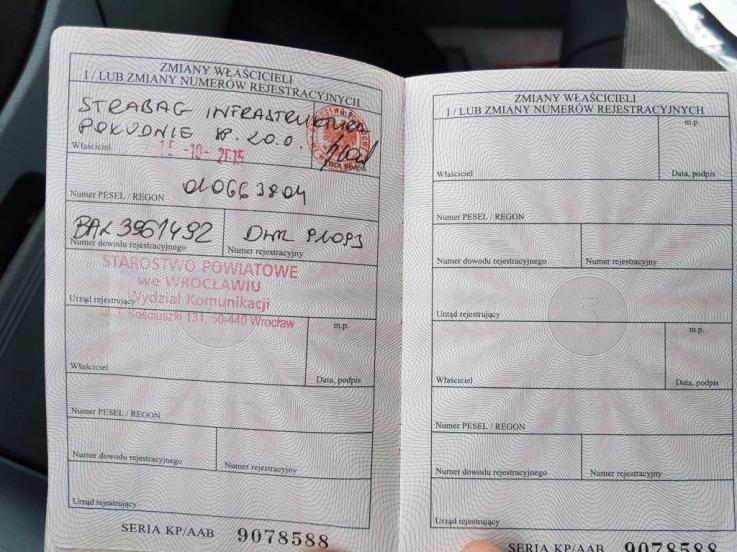 ZMIANY WŁAŚCICIELI
I / LUB ZMIANY NUMERÓW REJESTRACYJNYCH
STRABAG INFRASTRUKTURA
POŁUDNIE SP. Z O.O.
Właściciel
15 -10- 2015
Numer PESEL / REGON
Numer dowodu rejestracyjnego
Numer rejestracyjny
STAROSTWO POWIATOWE
we WROCŁAWIU
Wydział Komunikacji
Urząd rejestrujący
Kościuszki 131, 50-440 Wrocław
m.p.
Właściciel
Data, podpis
Numer PESEL / REGON
Numer dowodu rejestracyjnego
Numer rejestracyjny
Urząd rejestrujący
SERIA KP/AAB 9078588
ZMIANY WŁAŚCICIELI
I / LUB ZMIANY NUMERÓW REJESTRACYJNYCH
m.p.
Właściciel
Data, podpis
Numer PESEL / REGON
Numer dowodu rejestracyjnego
Numer rejestracyjny
Urząd rejestrujący
m.p.
Właściciel
Data, podpis
Numer PESEL / REGON
Numer dowodu rejestracyjnego
Numer rejestracyjny
Urząd rejestrujący
SERIA KP/AAB 9078588